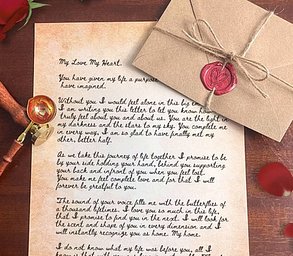 My Love My Heart,
You have given my life a purpose
have imagined.
Without you I would feel alone in this big
I am writing you this letter to let you know how
truly feel about you and about us. You are the light in
my darkness and the stars to my sky. You complete me
in every way, I am so glad to have finally met my
other, better half.
As we take this journey of life together I promise to be
by your side holding your hand, behind you supporting
your back and infront of you when you feel lost.
You make me feel complete love and for that I will
forever be greatful to you.
The sound of your voice fills me with the butterflies of
a thousand lifetimes. I love you so much in this life,
that I promise to find you in the next. I will look for
the scent and shape of you in every dimension and I
will instantly recognize you as home. My home.
I do not know what my life was before you, all I